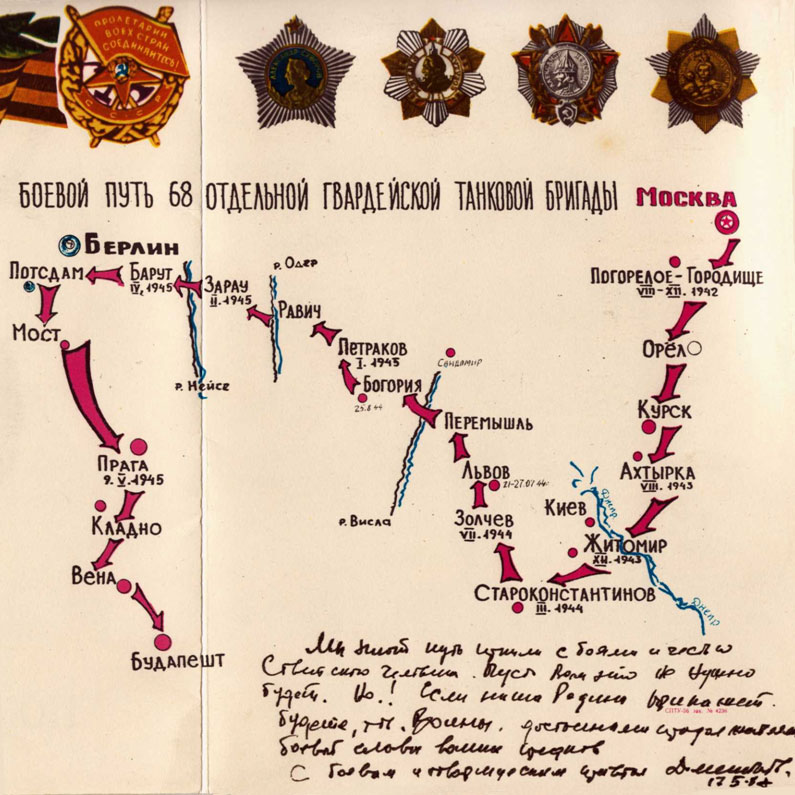 ПРОЛЕТАРИИ
ВСЕХ СТРАН
СОЕДИНЯЙТЕСЬ!
СССР
БОЕВОЙ ПУТЬ 68 ОТДЕЛЬНОЙ ГВАРДЕЙСКОЙ ТАНКОВОЙ БРИГАДЫ
МОСКВА
БЕРЛИН
ПОТСДАМ
БАРУТ
IV. 1945
ЗАРАУ
II. 1945
р. Одер
РАВИЧ
ПОГОРЕЛОЕ-ГОРОДИЩЕ
VIII-XII. 1942
МОСТ
ПЕТРАКОВ
I. 1945
ОРЁЛ
р. Нейсе
БОГОРИЯ
25.8.44
КУРСК
ПЕРЕМЫШЛЬ
ПРАГА
9. V. 1945
ЛЬВОВ
21-27.07.44г.
АХТЫРКА
VIII. 1943
КЛАДНО
р. Висла
ЗОЛЧЕВ
VII. 1944
КИЕВ
Днепр
ЖИТОМИР
XII. 1943
ВЕНА
СТАРОКОНСТАНТИНОВ
III. 1944
Днепр
БУДАПЕШТ
Мы этот путь прошли с боями и честью
Советского человека. Пусть вам это не нужно
будет. Но! Если наша Родина прикажет
СПТУ-56 зак. № 4236
будете, т.т. Воины, достойными
боевой славы ваших
С боевым и приветом